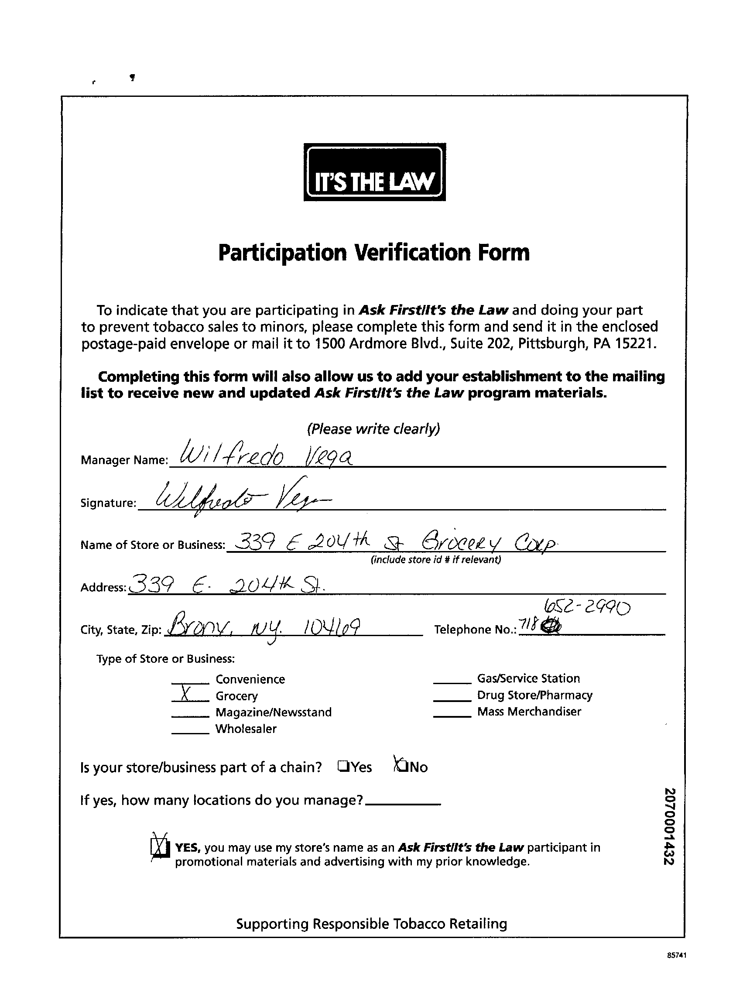 IT'S THE LAW
Participation Verification Form
To indicate that you are participating in Ask First/It's the Law and doing your part
to prevent tobacco sales to minors, please complete this form and send it in the enclosed
postage-paid envelope or mail it to 1500 Ardmore Blvd., Suite 202, Pittsburgh, PA 15221.
Completing this form will also allow us to add your establishment to the mailing
list to receive new and updated Ask First/It's the Law program materials.
(Please write clearly)
Manager Name: Wilfredo Vega
Signature: Wilfredo Vega
Name of Store or Business: 339 E 204th St Grocery Corp.
(include store id # if relevant)
Address: 339 E. 204th St.
652-2990
City, State, Zip: Bronx, NY. 10469 Telephone No.: 718
Type of Store or Business:
Convenience Gas/Service Station
X Grocery Drug Store/Pharmacy
Magazine/Newsstand Mass Merchandiser
Wholesaler
Is your store/business part of a chain? ❑Yes ☒No
If yes, how many locations do you manage?
☒ YES, you may use my store's name as an Ask First/It's the Law participant in
promotional materials and advertising with my prior knowledge.
Supporting Responsible Tobacco Retailing
2070001432
85741